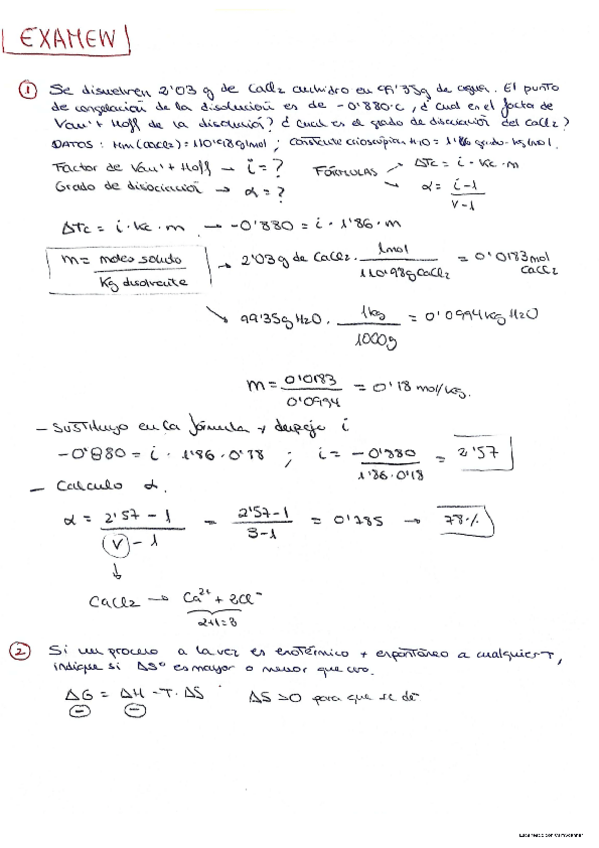 EXAMEN
① Se disuelven 2'03 g de CaCl2 anhidro en 99'35g de agua. El punto
de congelación de la disolución es de -0'880ºC, ¿cual es el factor de
Van't Hoff de la disolución? ¿cual es el grado de disociación del CaCl2?
DATOS: Mm(CaCl2) = 110'98g/mol; constante crioscópica H2O = 1'86 grado·kg/mol.
Factor de Van't Hoff → i = ?
Grado de disociación → α = ?
FÓRMULAS → ΔTc = i · Kc · m
→ α = i-1 / v-1
ΔTc = i · Kc · m → -0'880 = i · 1'86 · m
m = moles soluto / Kg disolvente
→ 2'03 g de CaCl2 · 1mol / 110'98g CaCl2 = 0'0183 mol CaCl2
→ 99'35g H2O · 1kg / 1000g = 0'0994 kg H2O
m = 0'0183 / 0'0994 = 0'18 mol/kg.
- Sustituyo en la fórmula y despejo i
-0'880 = i · 1'86 · 0'18 ; i = -0'880 / 1'86·0'18 = 2'57
- Calculo α.
α = 2'57 - 1 / v - 1 = 2'57-1 / 3-1 = 0'785 → 78%
CaCl2 → Ca2+ + 2Cl-
2+1=3
② Si un proceso a la vez es exotérmico y espontáneo a cualquier T,
indique si ΔSº es mayor o menor que cero.
ΔG = ΔH - T · ΔS ΔS>0 para que se dé
⊖ ⊖